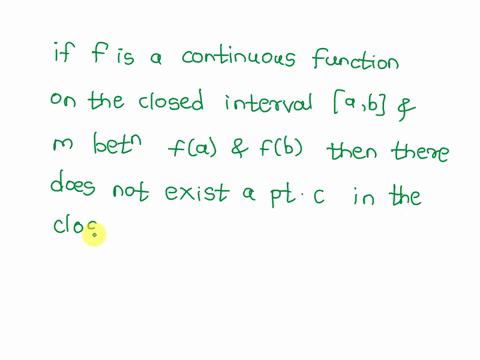 if f is a continuous function
on the closed interval [a,b] &
m betn f(a) & f(b) then there
does not exist a pt. c in the
clos